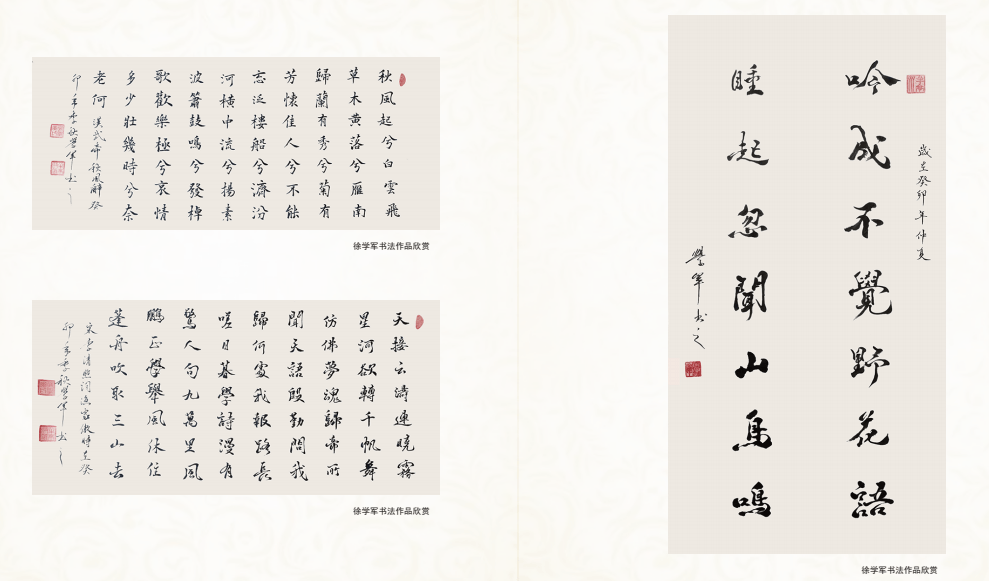 秋風起兮白雲飛
草木黄落兮雁南
歸蘭有秀兮菊有
芳懷佳人兮不能
忘泛楼船兮濟汾
河横中流兮揚素
波簫鼓鳴兮發棹
歌歡樂極兮哀情
多少壯幾時兮奈
老何 漢武帝秋風辭 癸
卯年季秋學軍書之
徐学军书法作品欣赏
天接云濤連曉霧
星河欲轉千帆舞
仿佛夢魂歸帝所
聞天語殷勤問我
歸何處我報路長
嗟日暮學詩漫有
驚人句九萬里風
鵬正學舉風休住
蓬舟吹取三山去
宋李清照詞漁家傲時在癸
卯年季秋學軍書之
徐学军书法作品欣赏
歲在癸卯年仲夏
吟成不覺野花語
睡起忽聞山鳥鳴
學軍書之
徐学军书法作品欣赏